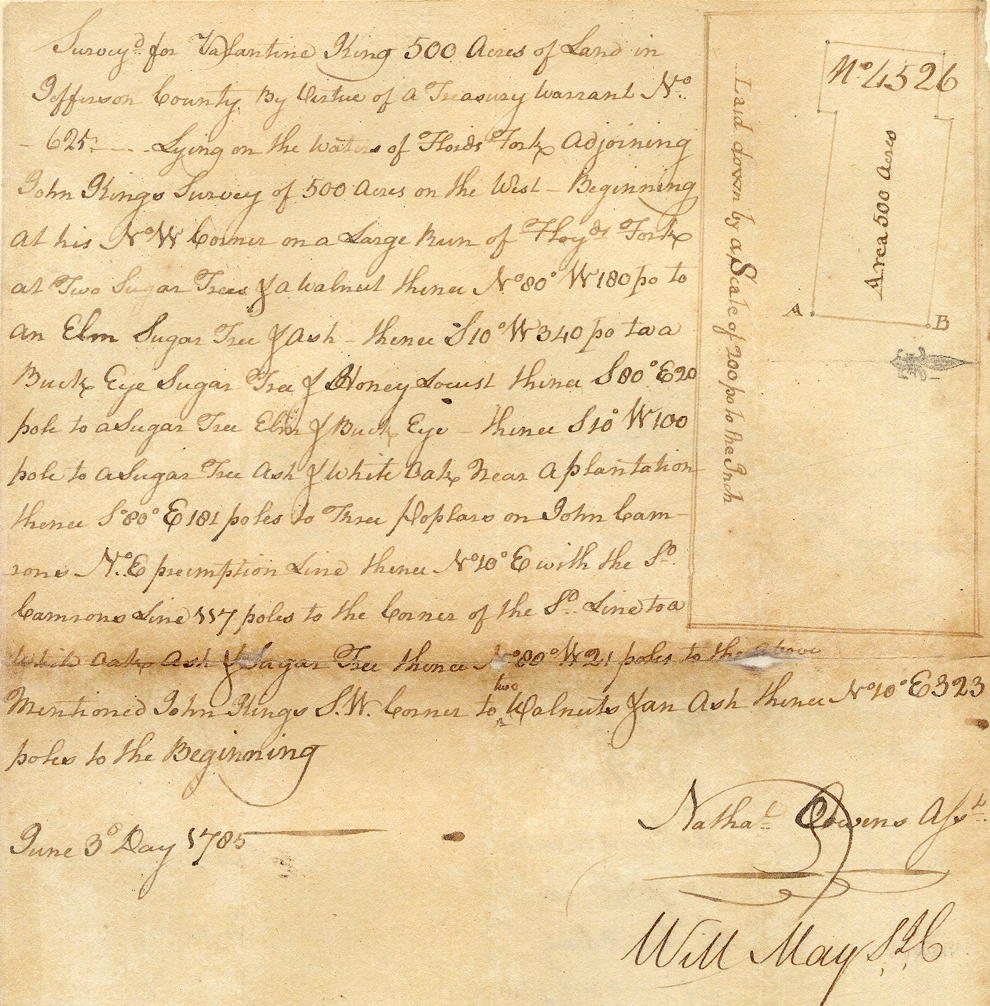 Survey'd for Vallantine King 500 Acres of Land in
Jefferson County By Virtue of a Treasury Warrant No.
625 Lying on the Waters of Floids Fork Adjoining
John Kings Survey of 500 Acres on the West – Beginning
at his No W Corner on a Large Run of Floyds Fork
at Two Sugar Trees & a Walnut thence No 80° W 180 po to
an Elm Sugar Tree & Ash – thence S 10° W 340 po to a
Buck Eye Sugar Tree & Honey Locust thence S 80° E 20
pole to a Sugar Tree Elm & Buck Eye – thence S 10° W 100
pole to a Sugar Tree Ash & White Oak Near a plantation
thence S 80° E 181 poles to Three Poplars on John Cam-
rons N. E preemption Line thence No 10° E with the Sd
Camrons Line 117 poles to the Corner of the Sd Line to a
White Oak Ash & Sugar Tree thence No 80° W 21 poles to the above
Mentioned John Kings S.W. Corner to two Walnuts & an Ash thence No 10° E 323
poles to the Beginning
June 3d Day 1785
Nathal Owens Asst
Will May S J C
No 4526
Area 500 Acres
A
B
Laid down by a Scale of 200 po to the Inch